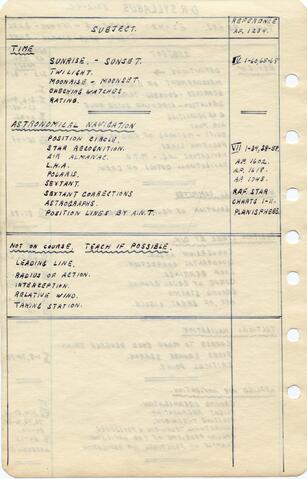 SUBJECT.
REFERENCE
A.P. 1234.
TIME
SUNRISE. - SUNSET.
TWILIGHT.
MOONRISE - MOONSET.
CHECKING WATCHES.
RATING.
ASTRONOMICAL NAVIGATION
POSITION CIRCLE.
STAR RECOGNITION.
AIR ALMANAC.
L.H.A.
POLARIS.
SEXTANT.
SEXTANT CORRECTIONS
ASTROGRAPHS.
POSITION LINES BY A.N.T.
A.P. 1602.
A.P. 1618.
RAF. STAR
CHARTS I-II.
PLANISPHERE.
NOT ON COURSE. TEACH IF POSSIBLE.
LEADING LINE.
RADIUS OF ACTION.
INTERCEPTION.
RELATIVE WIND.
TAKING STATION.